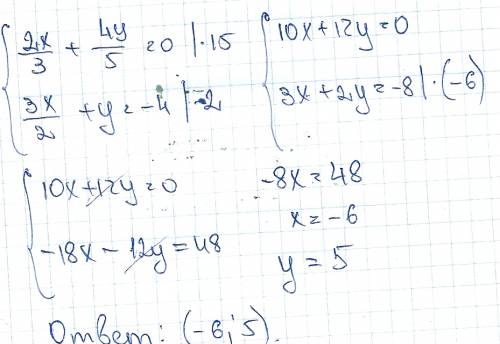 2x/3 + 4y/5 = 0 |·15
3x/2 + y = -4 |·2
10x+12y=0
3x+2y=-8|·(-6)
10x+12y=0
-18x-12y=48
-8x=48
x=-6
y=5
Ответ: (-6; 5).